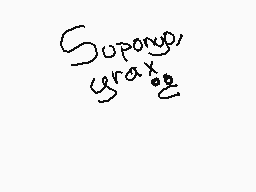 Suponyo,
grax